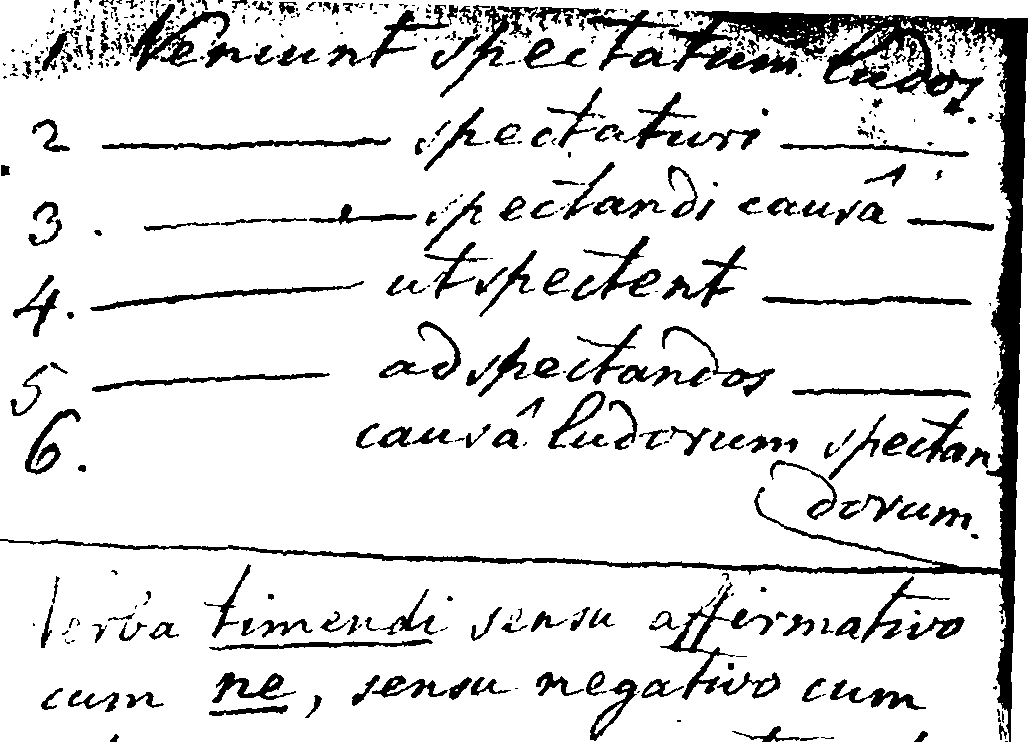 1 Veniunt spectatum ludos.
2 ——— spectaturi ———
3. ——— spectandi causâ ———
4. ——— ut spectent ———
5 ——— ad spectandos ———
6. causâ ludorum spectan-
dorum.
Verba timendi sensu affirmativo
cum ne, sensu negativo cum